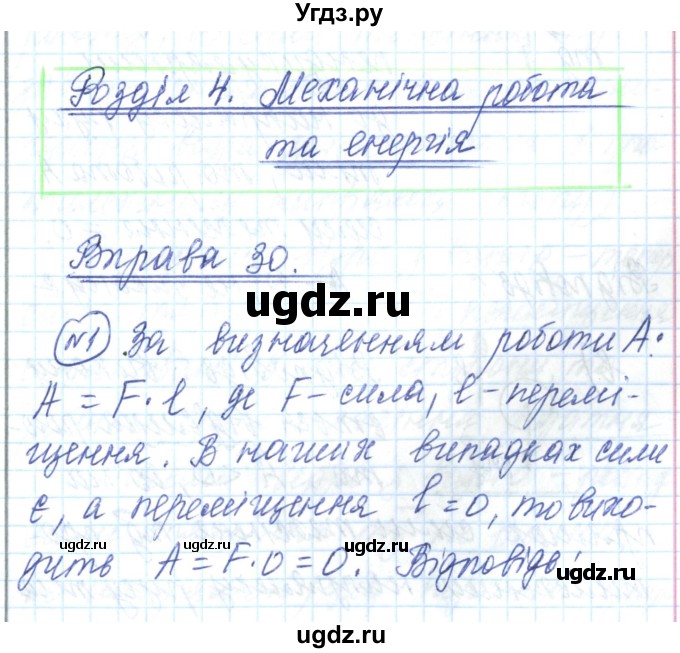 Угдз.ру
Розділ 4. Механічна робота
та енергія
Вправа 30.
ugdz.ru
№1 За визначенням роботи А:
A = F·l, де F – сила, l – перемі-
щення. В наших випадках сили
є, а переміщення l=0, то вихо-
ugdz.ru ugdz.ru ugdz.ru
дить A = F·0 = 0. Відповідь:
ugdz.ru